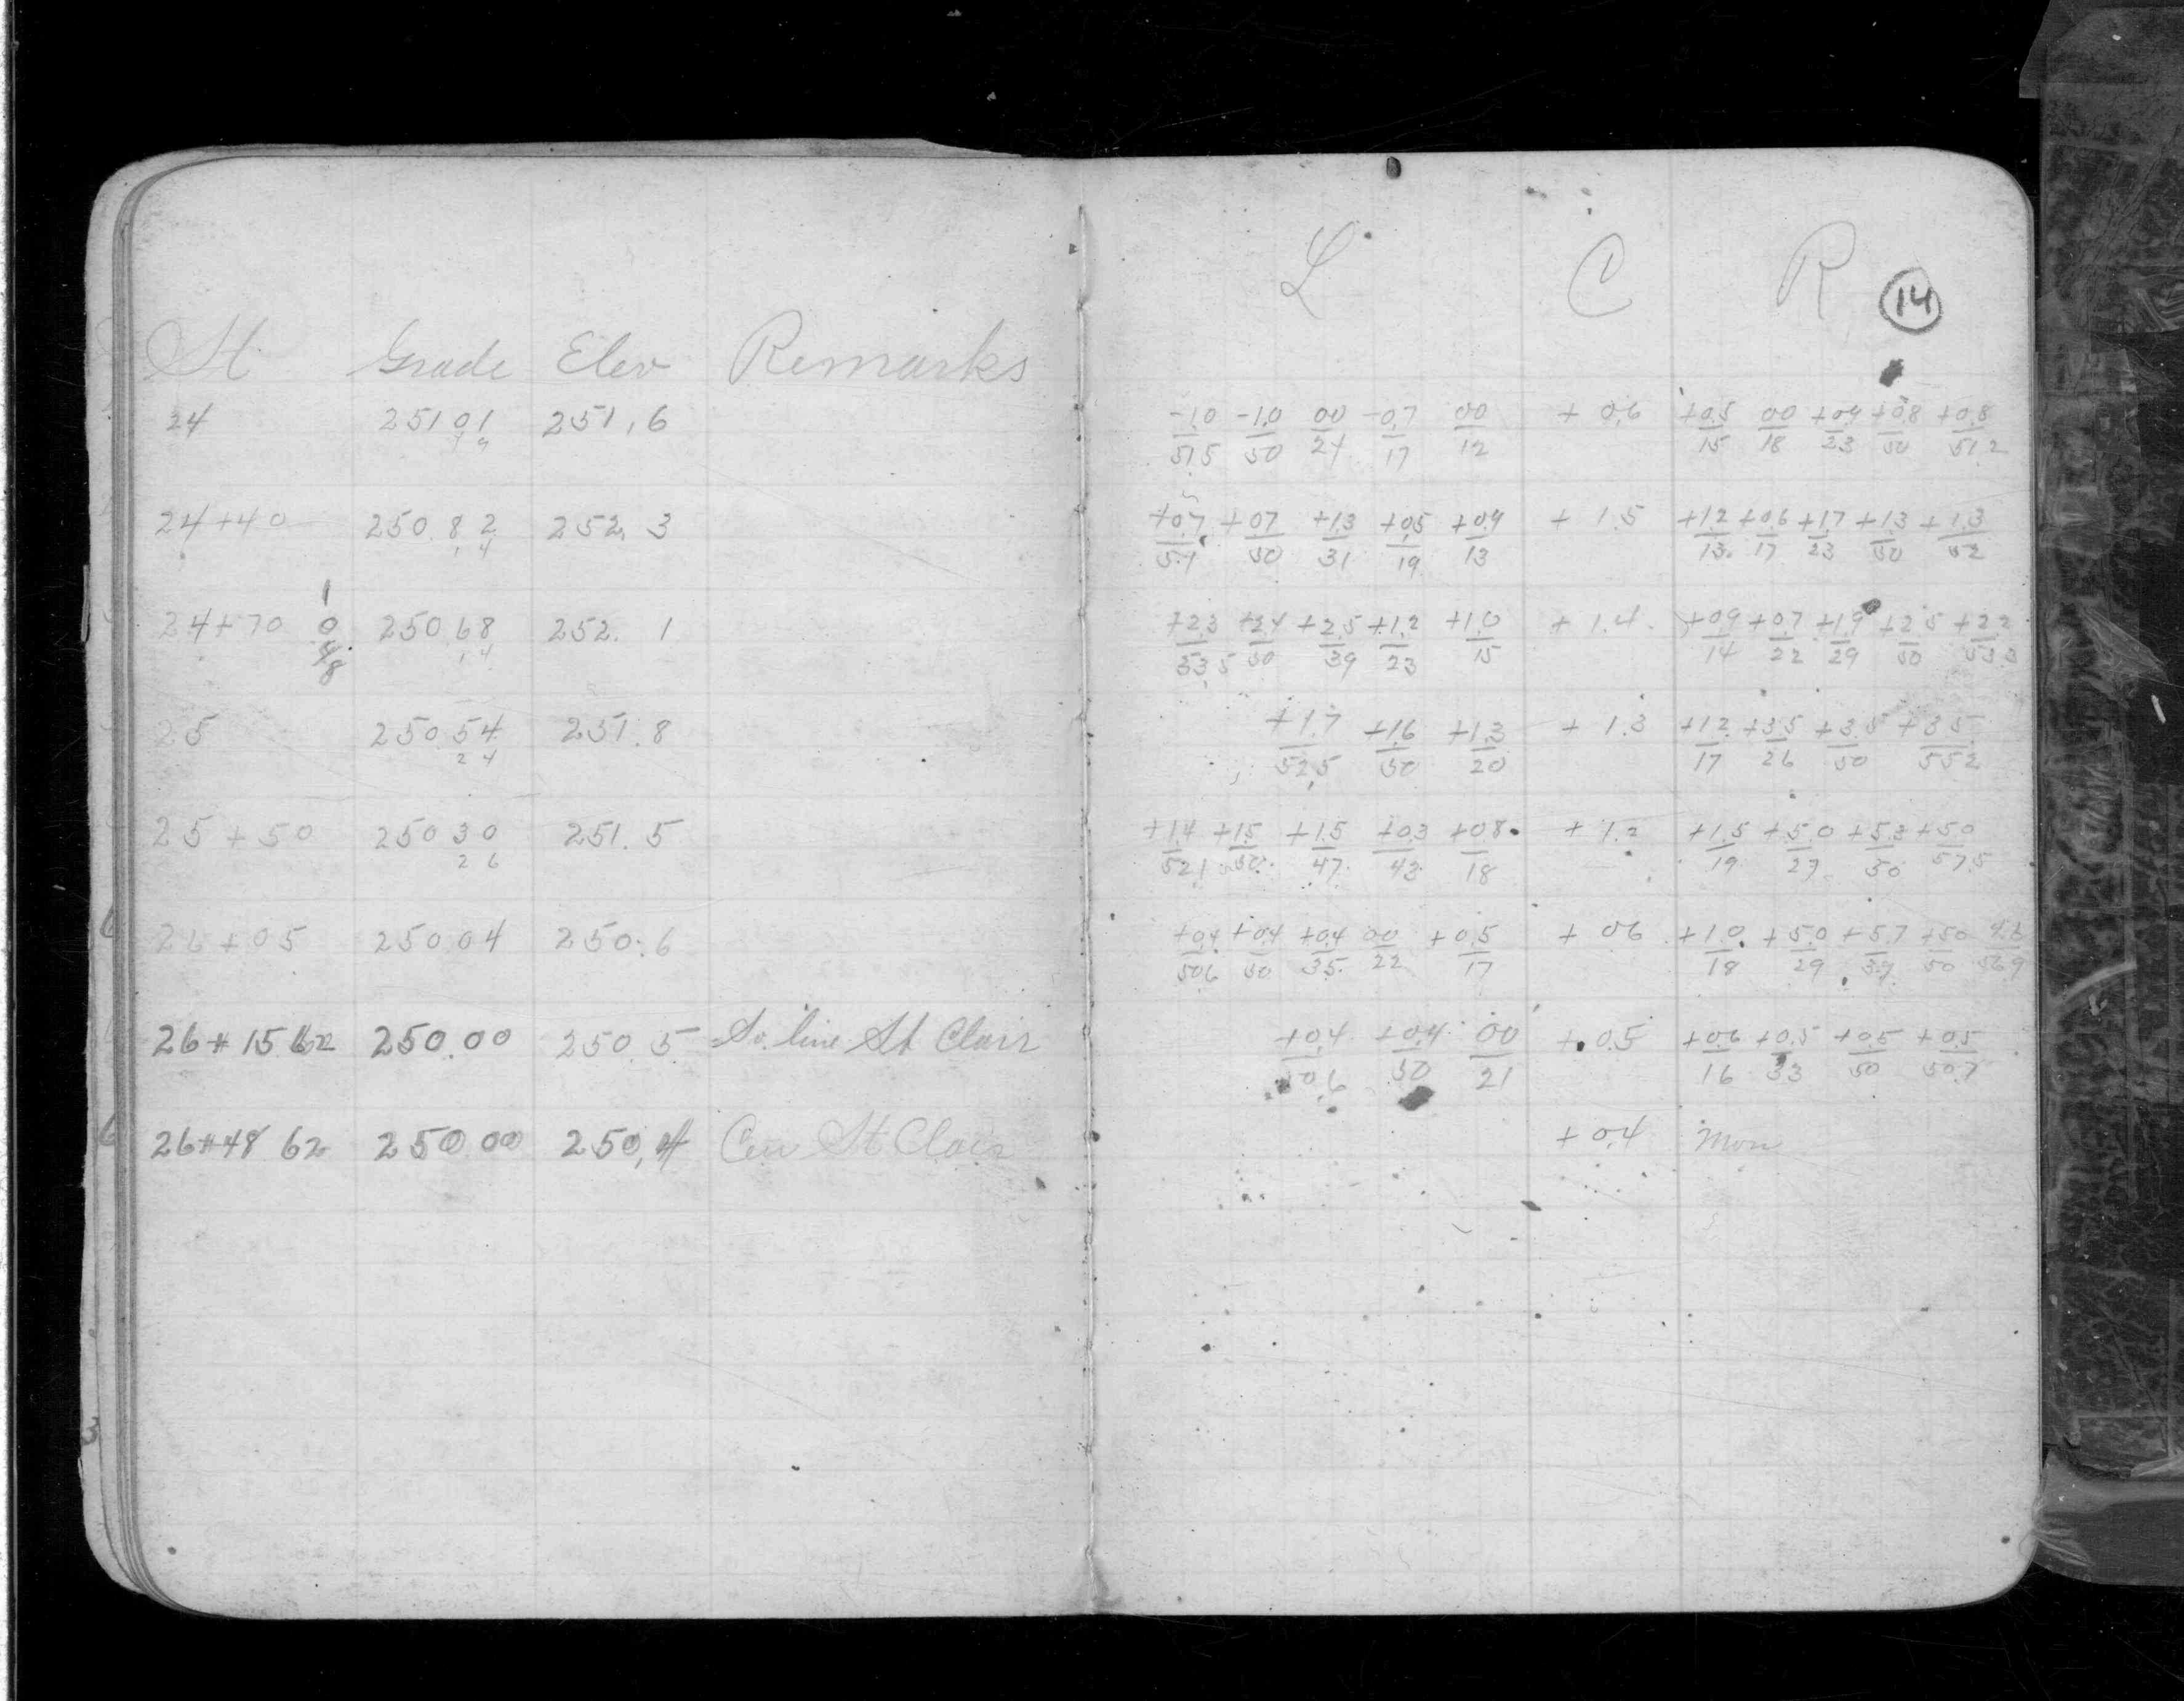 L C R 14
St. Grade Elev Remarks
24 251.01 251.6 -1.0 -1.0 00 -0.7 00 + 0.6 +0.5 00 +0.4 +0.8 +0.8
51.5 50 24 17 12 15 18 23 50 51.2
24+40 250.82 252.3 +0.7 +0.7 +1.3 +0.5 +0.4 + 1.5 +1.2 +0.6 +1.7 +1.3 +1.3
51 50 31 19 13 13 17 23 50 52
24+70 250.68 252.1 +2.3 +2.4 +2.5 +1.2 +1.0 + 1.4 +0.9 +0.7 +1.9 +2.5 +2.2
53.5 50 39 23 15 14 22 29 50 53.3
25 250.54 251.8 +1.7 +1.6 +1.3 + 1.3 +1.2 +3.5 +3.5 +3.5
52.5 50 20 17 26 50 55.2
25+50 250.30 251.5 +1.4 +1.5 +1.5 +0.3 +0.8 + 1.2 +1.5 +5.0 +5.3 +5.0
52.1 50 47 43 18 19 27 50 57.5
26+05 250.04 250.6 +0.4 +0.4 +0.4 00 +0.5 + 0.6 +1.0 +5.0 +5.7 +5.0 4.6
50.6 50 35 22 17 18 29 37 50 56.9
26+15.62 250.00 250.5 So. line St Clair +0.4 +0.4 00 + 0.5 +0.6 +0.5 +0.5 +0.5
50.6 50 21 16 33 50 50.7
26+48.62 250.00 250.4 Cen St Clair + 0.4 Mon